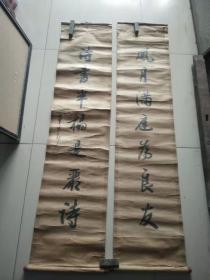 風月滿庭為良友
詩書半榻是嚴師